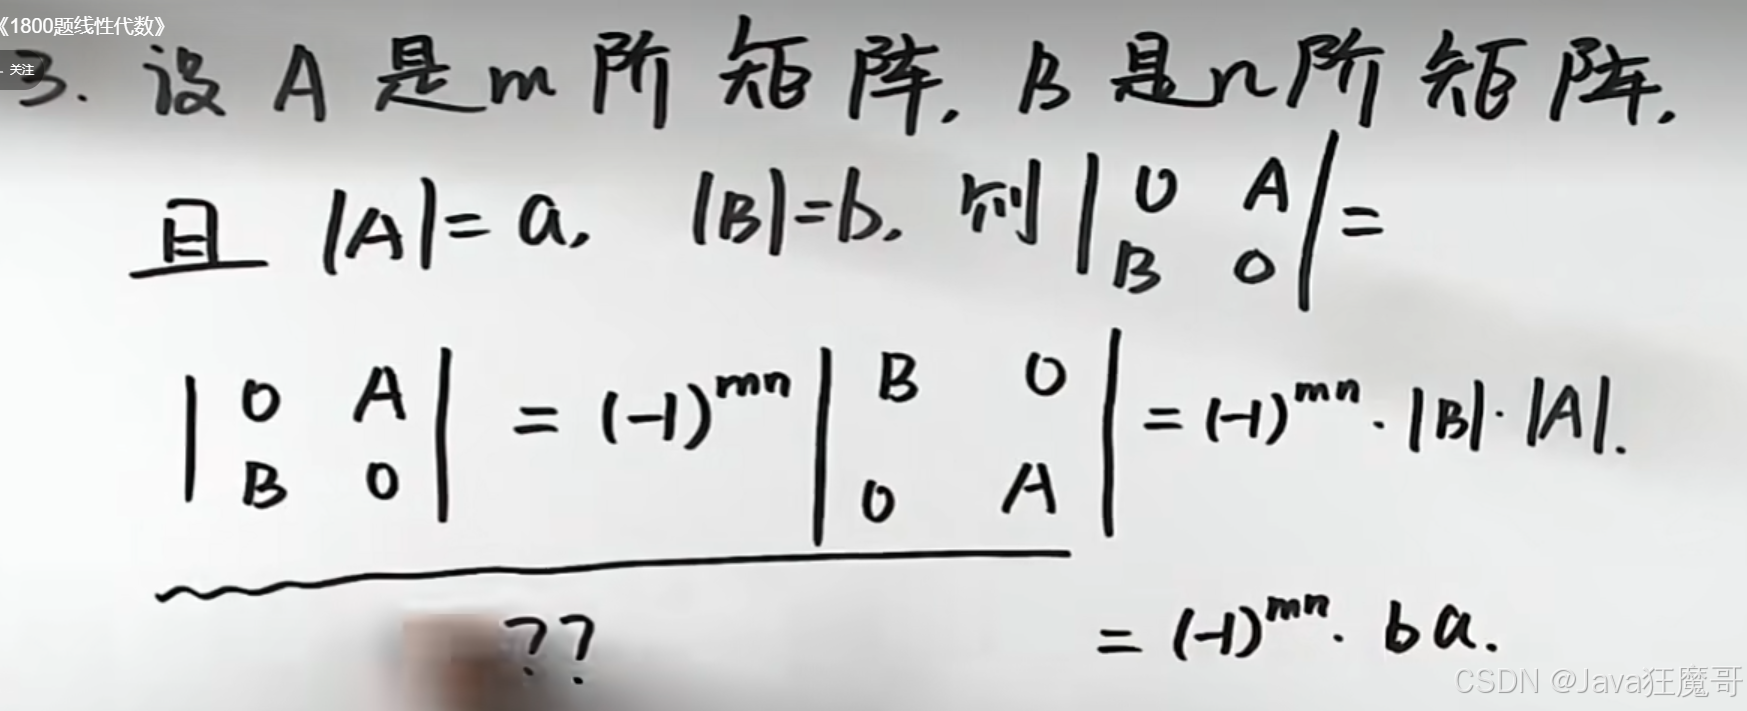 《1800题线性代数》
关注
3. 设 A 是 m 阶 矩 阵, B 是 n 阶 矩 阵,
且 |A| = a, |B| = b, 则 | 0 A | =
B 0
| 0 A | = (-1)^mn | B 0 | = (-1)^mn · |B| · |A|.
B 0 0 A
?? = (-1)^mn · b a.
CSDN @Java狂魔哥